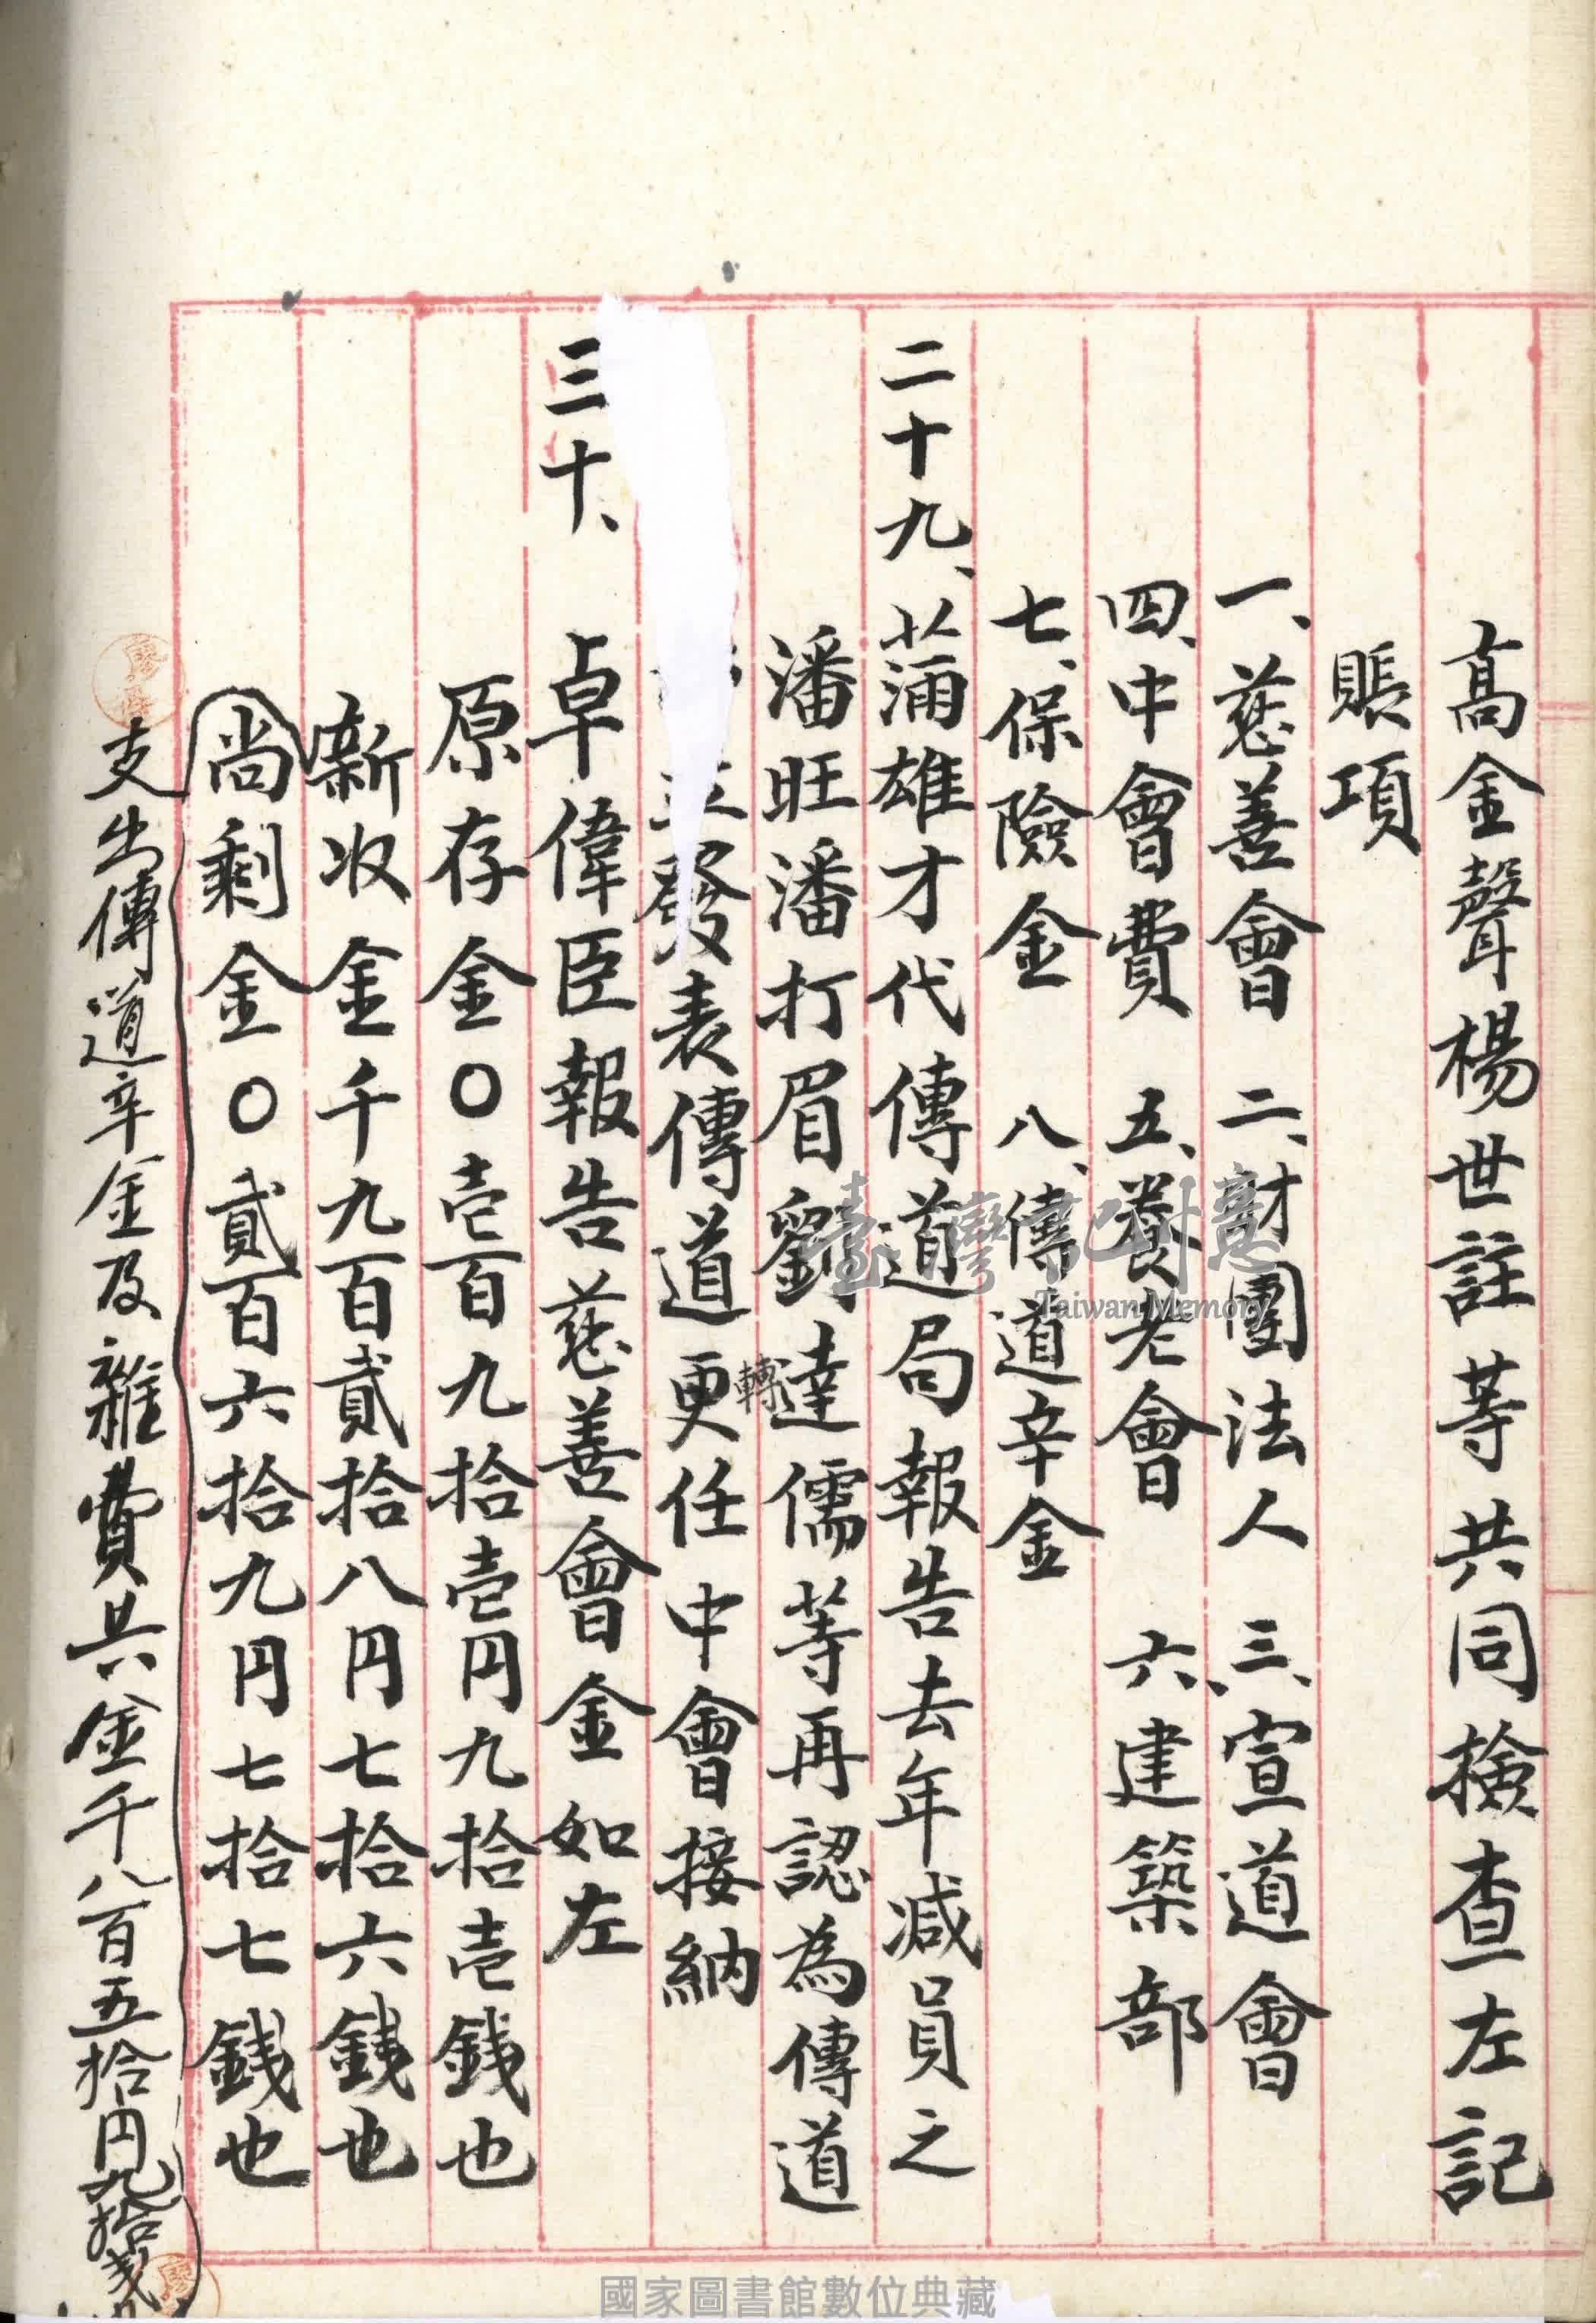 高金聲楊世註等共同檢查左記
賬項
一、慈善會 二、財團法人 三、宣道會
四、中會費 五、養老會 六建築部
七、保險金 八、傳道辛金
二十九、蒲雄才代傳道局報告去年減員之
潘旺潘打眉劉達儒等再認為傳道
發表傳道更任中會接納
轉
三十、卓偉臣報告慈善會金如左
原存金〇壱百九拾壱円九拾壱銭也
新收金千九百貳拾八円七拾六銭也
尚剩金〇貳百六拾九円七拾七銭也
支出傳道辛金及雜費共金千八百五拾円九拾
臺灣記憶
Taiwan Memory
國家圖書館數位典藏